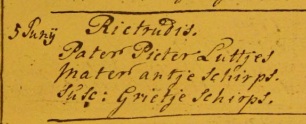 5 Junÿ Rietrudis.
Pater Pieter Luttjes
Mater antje schirps.
susc: Grietje Schirps.